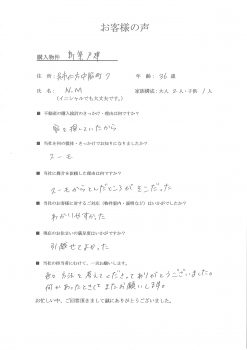 お客様の声
購入物件 新築戸建
住所： 年齢：36歳
氏名：N.M 家族構成：大人2人・子供1人
（イニシャルでも大丈夫です。）
■ 不動産の購入検討のきっかけ・理由は何ですか？
家を探していたから
■ 当社を何の媒体・きっかけでお知りになりましたか？
スーモ
■ 当社に仲介を依頼した理由は何ですか？
スーモからとんだところがそこだった
■ 当社のお客様に対するご対応（物件案内・説明など）はいかがでしたか？
わかりやすかった
■ 現在のお住まいの満足度はいかがですか？
引越せてよかった
■ 当社の担当者にむけて、一言お願いします。
色々方法を考えてくださってありがとうございました。
何かあったときにまたお願いします。
お忙しい中、ご回答頂きまして誠にありがとうございました。